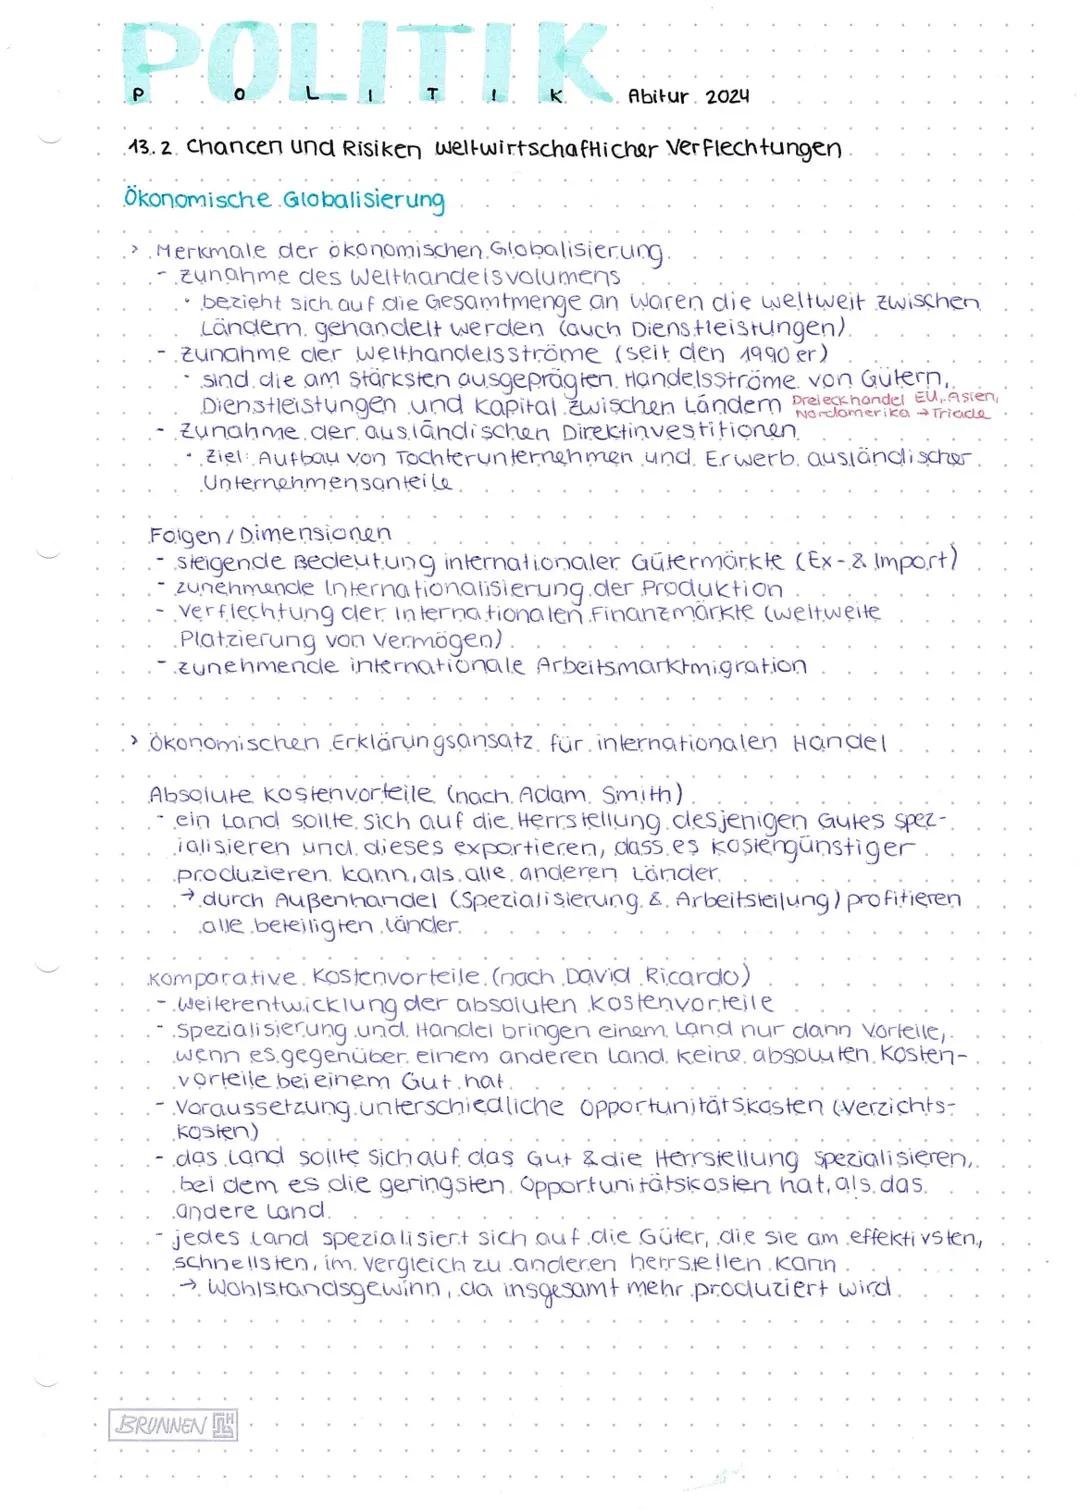 POLITIK
P O L I T I K Abitur 2024
13.2. Chancen und Risiken weltwirtschaftlicher Verflechtungen
Ökonomische Globalisierung
> Merkmale der ökonomischen Globalisierung
- Zunahme des Welthandelsvolumens
• bezieht sich auf die Gesamtmenge an Waren die weltweit zwischen
Ländern gehandelt werden (auch Dienstleistungen)
- Zunahme der Welthandelsströme (seit den 1990er)
• sind die am stärksten ausgeprägten Handelsströme von Gütern,
Dienstleistungen und Kapital zwischen Ländern Dreieckhandel EU, Asien,
Nordamerika → Triade
- Zunahme der ausländischen Direktinvestitionen
• Ziel: Aufbau von Tochterunternehmen und Erwerb ausländischer
Unternehmensanteile
Folgen / Dimensionen
- steigende Bedeutung internationaler Gütermärkte (Ex- & Import)
- zunehmende Internationalisierung der Produktion
- Verflechtung der internationalen Finanzmärkte (weltweite
Platzierung von Vermögen)
- zunehmende internationale Arbeitsmarktmigration
> Ökonomischen Erklärungsansatz für internationalen Handel
Absolute Kostenvorteile (nach Adam Smith)
- ein Land sollte sich auf die Herrstellung desjenigen Gutes spez-
ialisieren und dieses exportieren, dass es kostengünstiger
produzieren kann, als alle anderen Länder.
→ durch Außenhandel (Spezialisierung & Arbeitsteilung) profitieren
alle beteiligten Länder.
Komparative Kostenvorteile (nach David Ricardo)
- Weiterentwicklung der absoluten Kostenvorteile
- Spezialisierung und Handel bringen einem Land nur dann Vorteile,
wenn es gegenüber einem anderen Land keine absoluten Kosten-
vorteile bei einem Gut hat
- Voraussetzung unterschiedliche Opportunitätskosten (Verzichts-
kosten)
- das Land sollte sich auf das Gut & die Herrstellung spezialisieren,
bei dem es die geringsten Opportunitätskosten hat, als das
andere Land.
- jedes Land spezialisiert sich auf die Güter, die sie am effektivsten,
schnellsten, im Vergleich zu anderen herrstellen kann
→ Wohlstandsgewinn, da insgesamt mehr produziert wird
BRUNNEN